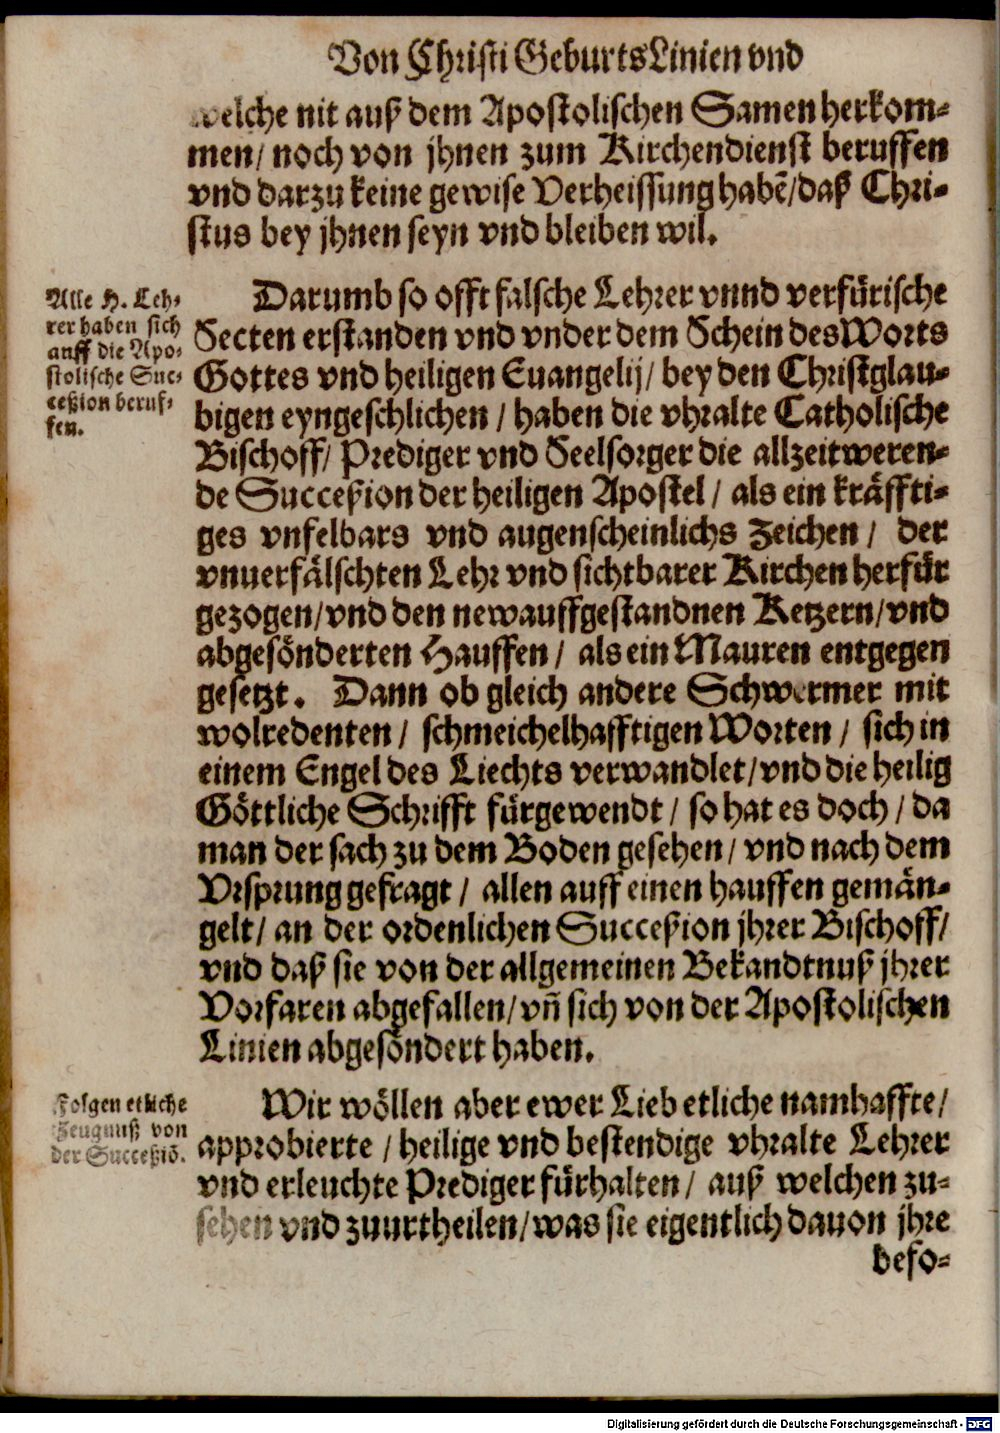 Von Christi Geburts Linien vnd
welche nit auß dem Apostolischen Samen herkom-
men/ noch von jhnen zum Kirchendienst beruffen
vnd darzu keine gewise Verheissung habẽ/ daß Chri-
stus bey jhnen seyn vnd bleiben wil.
Alle H. Leh-
rer haben sich
auff die Apo-
stolische Suc-
ceßion beruf-
fen.
Darumb so offt falsche Lehrer vnnd verfürische
Secten erstanden vnd vnder dem Schein des Worts
Gottes vnd heiligen Euangelij/ bey den Christglau-
bigen eyngeschlichen / haben die vhralte Catholische
Bischoff/ Prediger vnd Seelsorger die allzeitweren-
de Succeßion der heiligen Apostel / als ein kräffti-
ges vnfelbars vnd augenscheinlichs Zeichen / der
vnuerfälschten Lehr vnd sichtbarer Kirchen herfür
gezogen/ vnd den newauffgestandnen Ketzern/ vnd
abgesönderten Hauffen / als ein Mauren entgegen
gesetzt. Dann ob gleich andere Schwermer mit
wolredenten / schmeichelhafftigen Worten / sich in
einem Engel des Liechts verwandlet/ vnd die heilig
Göttliche Schrifft fürgewendt / so hat es doch / da
man der sach zu dem Boden gesehen / vnd nach dem
Vrsprung gefragt / allen auff einen hauffen gemän-
gelt/ an der ordenlichen Succeßion jhrer Bischoff/
vnd daß sie von der allgemeinen Bekandtnuß jhrer
Vorfaren abgefallen/ vñ sich von der Apostolischen
Linien abgesöndert haben.
Folgen etliche
Zeugnuß von
der Succeßiõ.
Wir wöllen aber ewer Lieb etliche namhaffte/
approbierte / heilige vnd bestendige vhralte Lehrer
vnd erleuchte Prediger fürhalten / auß welchen zu-
sehen vnd zuurtheilen/ was sie eigentlich dauon jhre
befo-
Digitalisierung gefördert durch die Deutsche Forschungsgemeinschaft - DFG